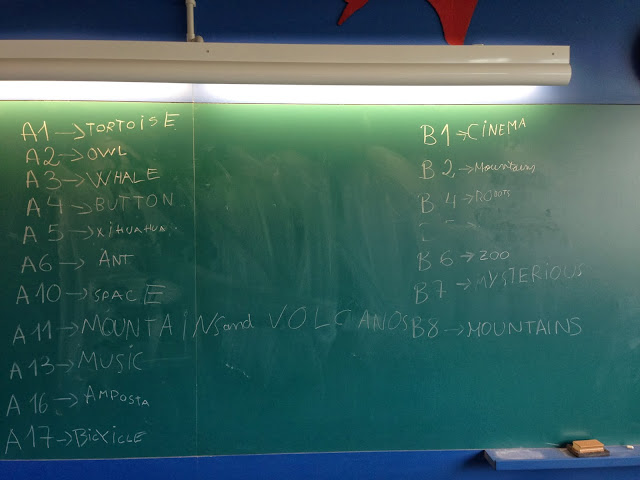 A1→TORTOISE
A2→OWL
A3→WHALE
A4→BUTTON
A5→XIHUAHUA
A6→ANT
A10→SPACE
A11→MOUNTAINS and VOLCANOS
A13→MUSIC
A16→AMPOSTA
A17→BICXICLE
B1→CINEMA
B2→Mountains
B4→ROBOTS
B6→ZOO
B7→MYSTERIOUS
B8→MOUNTAINS